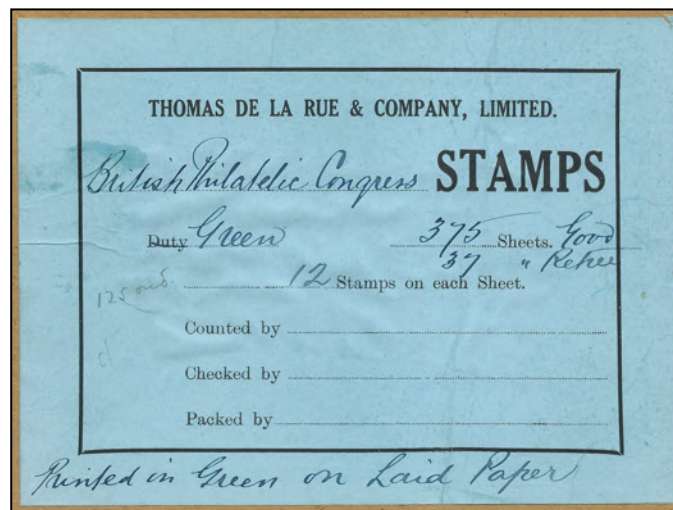 THOMAS DE LA RUE & COMPANY, LIMITED.
British Philatelic Congress STAMPS
Duty Green 375 Sheets. Good
37 " Retree
12 Stamps on each Sheet.
Counted by
Checked by
Packed by
Printed in Green on Laid Paper